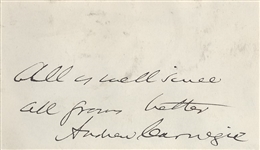 All is well since
all grows better
Andrew Carnegie